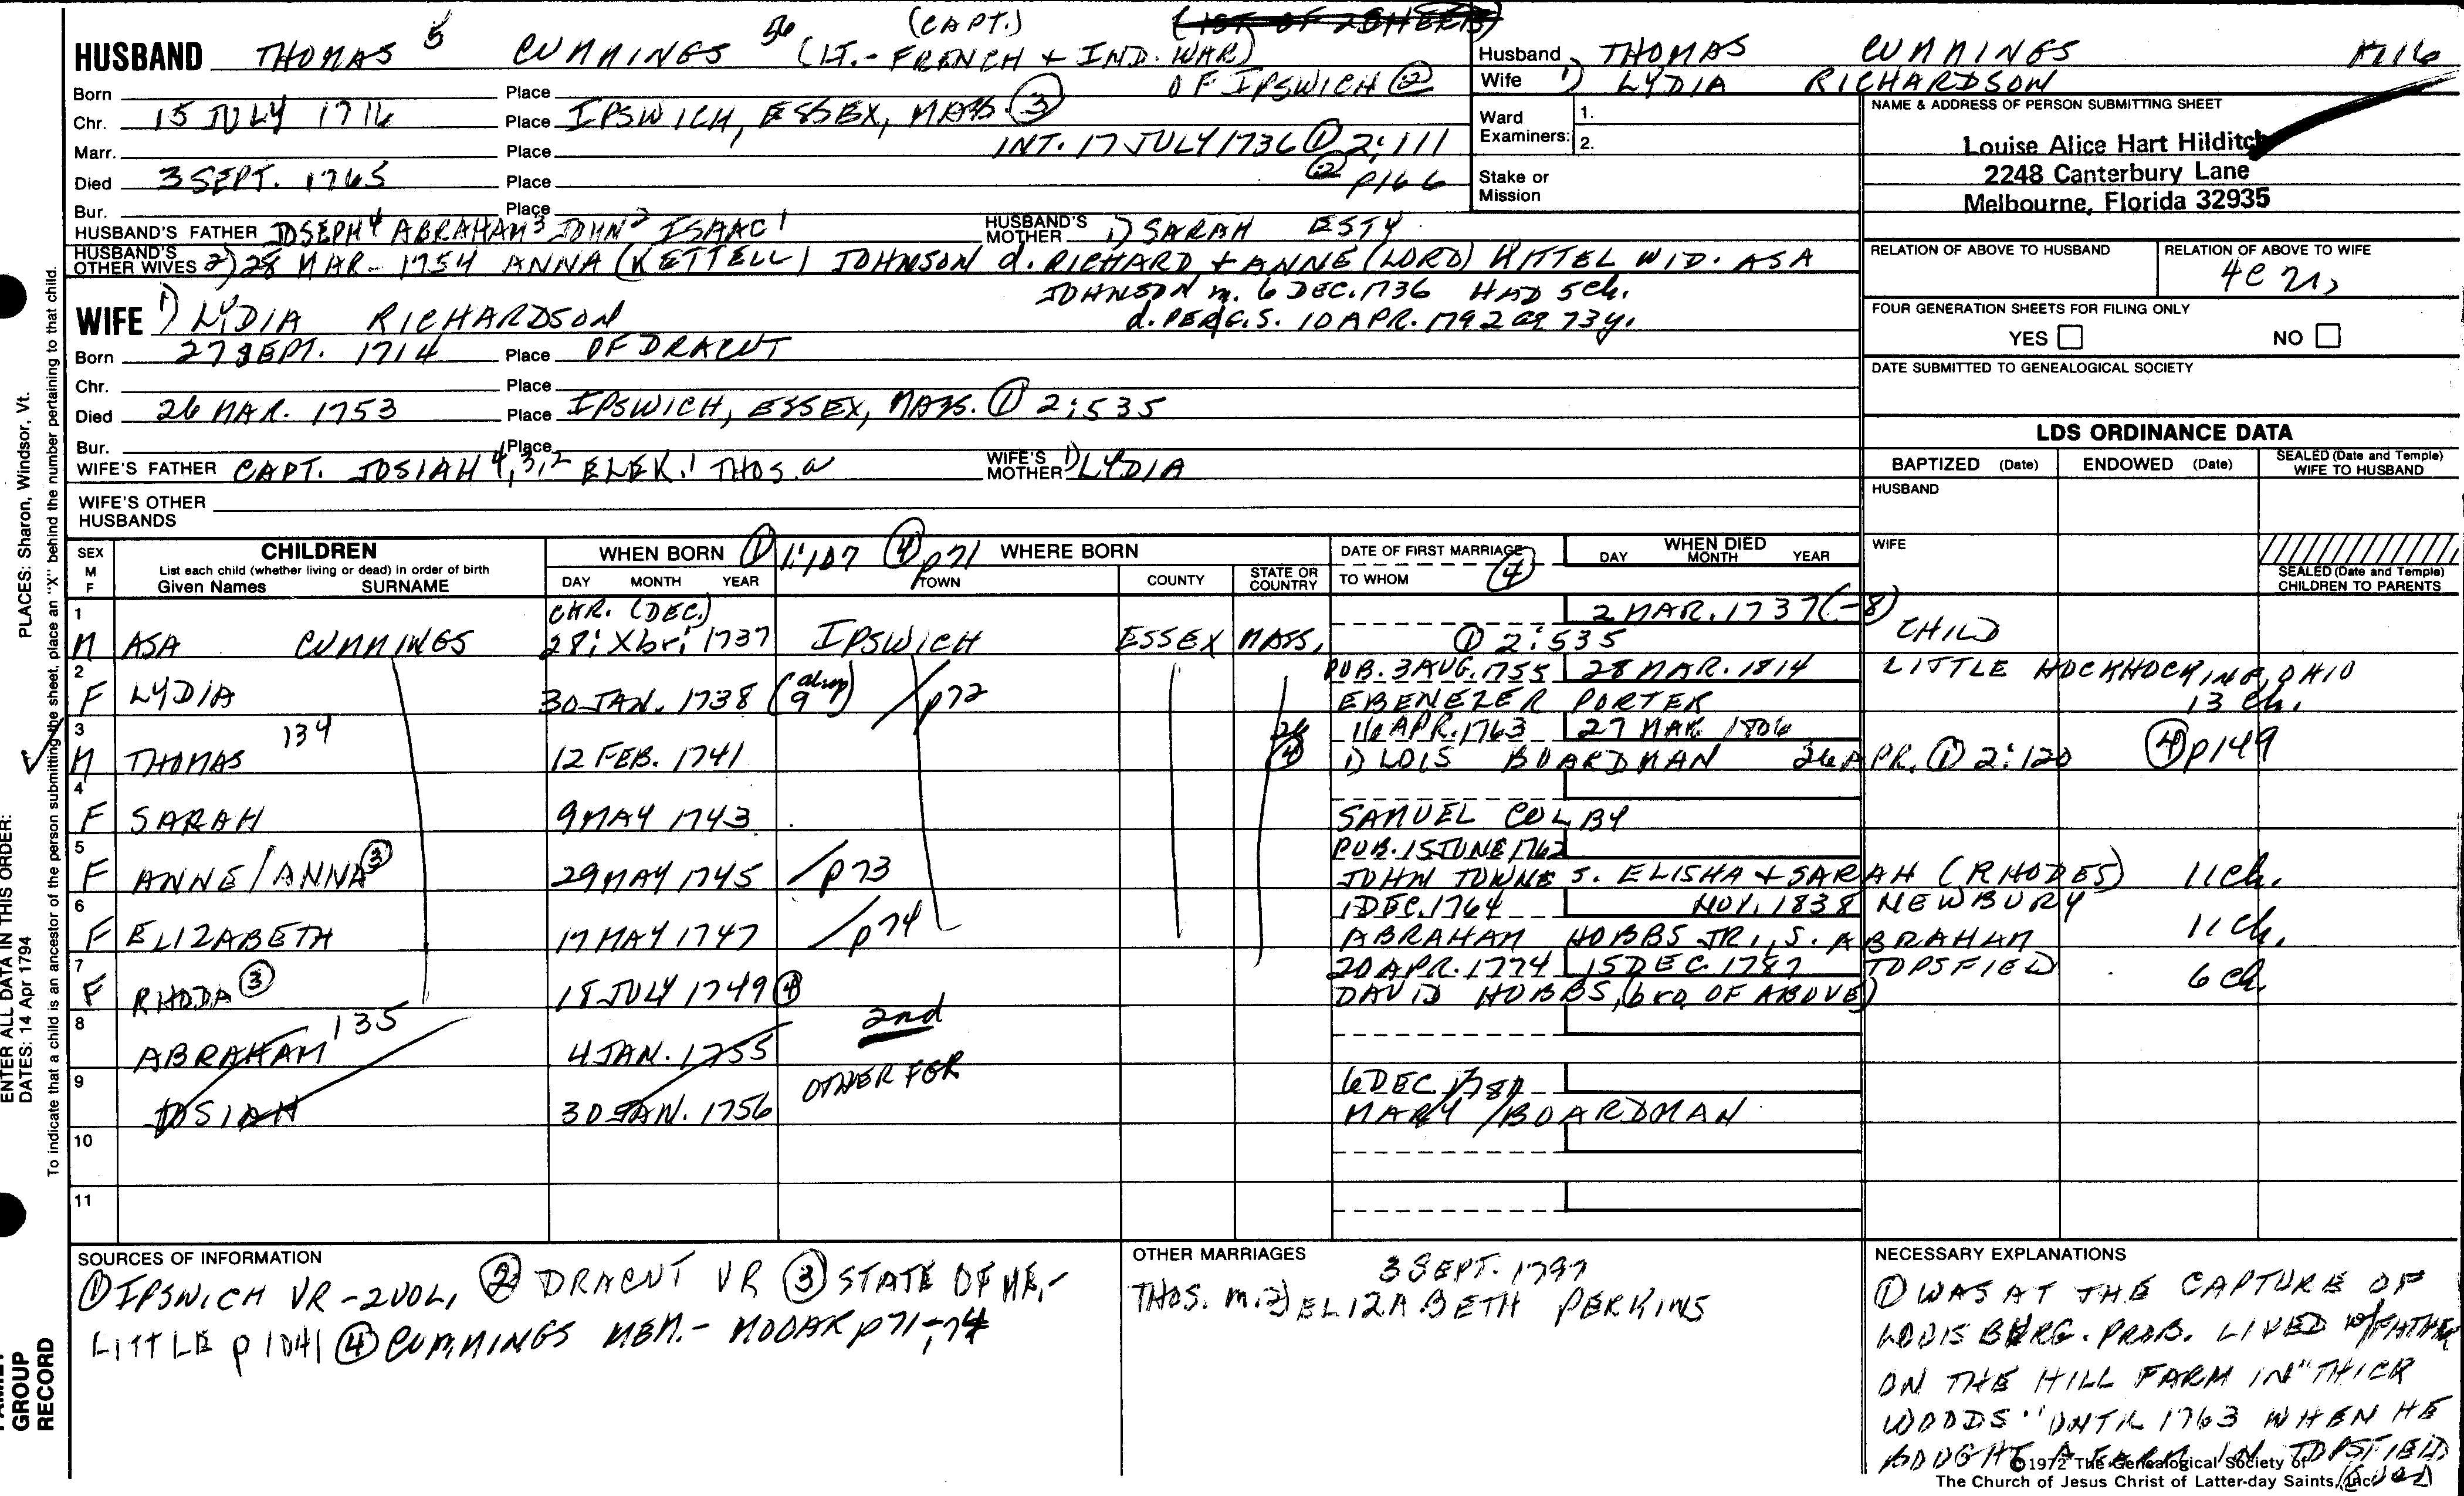 HUSBAND THOMAS 5 CUMMINGS 56 (CAPT.) (LT.- FRENCH + IND. WAR)
OF IPSWICH ②
Born Place
Chr. 15 JULY 1716 Place IPSWICH, ESSEX, MASS. ③
Marr. Place INT. 17 JULY 1736 ① 2:111
② p166
Died 3 SEPT. 1765 Place
Bur. Place
HUSBAND'S FATHER JOSEPH 4 ABRAHAM 3 JOHN 2 ISAAC 1 HUSBAND'S MOTHER 1) SARAH ESTY
HUSBAND'S OTHER WIVES 2) 28 MAR - 1754 ANNA (KETTELL) JOHNSON d. RICHARD + ANNE (LORD) KITTEL WID. ASA
JOHNSON m. 6 DEC. 1736 HAD 5 ch.
d. PER G.S. 10 APR. 1792 ae 73y.
WIFE 1) LYDIA RICHARDSON
Born 27 SEPT. 1714 Place OF DRACUT
Chr. Place
Died 26 MAR. 1753 Place IPSWICH, ESSEX, MASS. ① 2:535
Bur. Place
WIFE'S FATHER CAPT. JOSIAH 4,3,2 EZEK. 1 THOS. a WIFE'S MOTHER 1) LYDIA
WIFE'S OTHER HUSBANDS
Husband THOMAS CUMMINGS
Wife 1) LYDIA RICHARDSON
Ward Examiners: 1.
2.
Stake or Mission
NAME & ADDRESS OF PERSON SUBMITTING SHEET
Louise Alice Hart Hilditch
2248 Canterbury Lane
Melbourne, Florida 32935
RELATION OF ABOVE TO HUSBAND RELATION OF ABOVE TO WIFE
FOUR GENERATION SHEETS FOR FILING ONLY
YES NO
DATE SUBMITTED TO GENEALOGICAL SOCIETY
LDS ORDINANCE DATA
BAPTIZED (Date) ENDOWED (Date) SEALED (Date and Temple) WIFE TO HUSBAND
HUSBAND
WIFE
SEALED (Date and Temple) CHILDREN TO PARENTS
SEX M F CHILDREN WHEN BORN ① 1:107 ④ p71 WHERE BORN DATE OF FIRST MARRIAGE ④ WHEN DIED
List each child (whether living or dead) in order of birth
Given Names SURNAME DAY MONTH YEAR TOWN COUNTY STATE OR COUNTRY TO WHOM DAY MONTH YEAR
1 CHR. (DEC.) 2 MAR. 1737(-8)
M ASA CUMMINGS 28: Xbr: 1737 IPSWICH ESSEX MASS. ① 2:535 CHILD
2 PUB. 3 AUG. 1755 28 MAR. 1814 LITTLE HOCKHOCKING, OHIO
F LYDIA 30 JAN. 1738 (also 9) /p72 EBENEZER PORTER 13 ch.
3 134 26 ④ 16 APR. 1763 27 MAR 1806
M THOMAS 12 FEB. 1741 1) LOIS BOARDMAN 26 APR. ① 2:120 ④ p149
4
F SARAH 9 MAY 1743 SAMUEL COLBY
5 PUB. 15 JUNE 1762
F ANNE/ANNA ③ 29 MAY 1745 /p73 JOHN TOWNE S. ELISHA + SARAH (RHODES) 11 ch.
6 1 DEC. 1764 NOV. 1838 NEWBURY
F ELIZABETH 17 MAY 1747 /p74 ABRAHAM HOBBS JR., S. ABRAHAM 11 ch.
7 20 APR. 1774 15 DEC. 1787 TOPSFIELD
F RHODA ③ 18 JULY 1749 ④ DAVID HOBBS, (bro. OF ABOVE) 6 ch.
8 135
ABRAHAM 4 JAN. 1755 2nd
9 OTHER FGR 6 DEC
JOSIAH 30 JAN. 1756 MARY BOARDMAN
10
11
SOURCES OF INFORMATION
① IPSWICH VR - 2 VOL, ② DRACUT VR ③ STATE OF ME.-
LITTLE p 1041 ④ CUMMINGS MEM. - MOOAR p71-74
OTHER MARRIAGES
3 SEPT. 1797
THOS. m. 2) ELIZABETH PERKINS
NECESSARY EXPLANATIONS
① WAS AT THE CAPTURE OF
LOUISBURG. PROB. LIVED w/FATHER
ON THE HILL FARM IN "THICK
WOODS" UNTIL 1763 WHEN HE
BOUGHT A FARM IN TOPSFIELD
©1972 The Genealogical Society of
The Church of Jesus Christ of Latter-day Saints, Inc.
PLACES: Sharon, Windsor, Vt.
To indicate that a child is an ancestor of the person submitting the sheet, place an "X" behind the number pertaining to that child.
ENTER ALL DATA IN THIS ORDER:
DATES: 14 Apr 1794
GROUP
RECORD